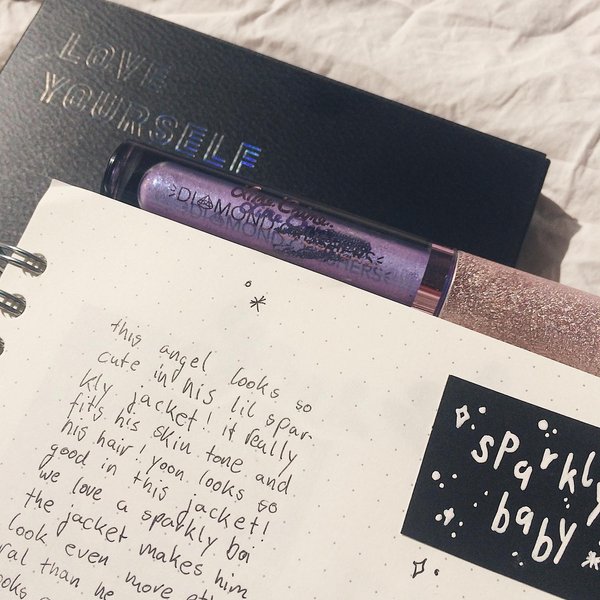 LOVE
YOURSELF
Lime Crime.
DIAMOND
this angel looks so
cute in his lil spar-
kly jacket! it really
fits his skin tone and
his hair! Yoon looks so
good in this jacket!
we love a sparkly boi
the jacket makes him
look even more
than he
sparkly
baby